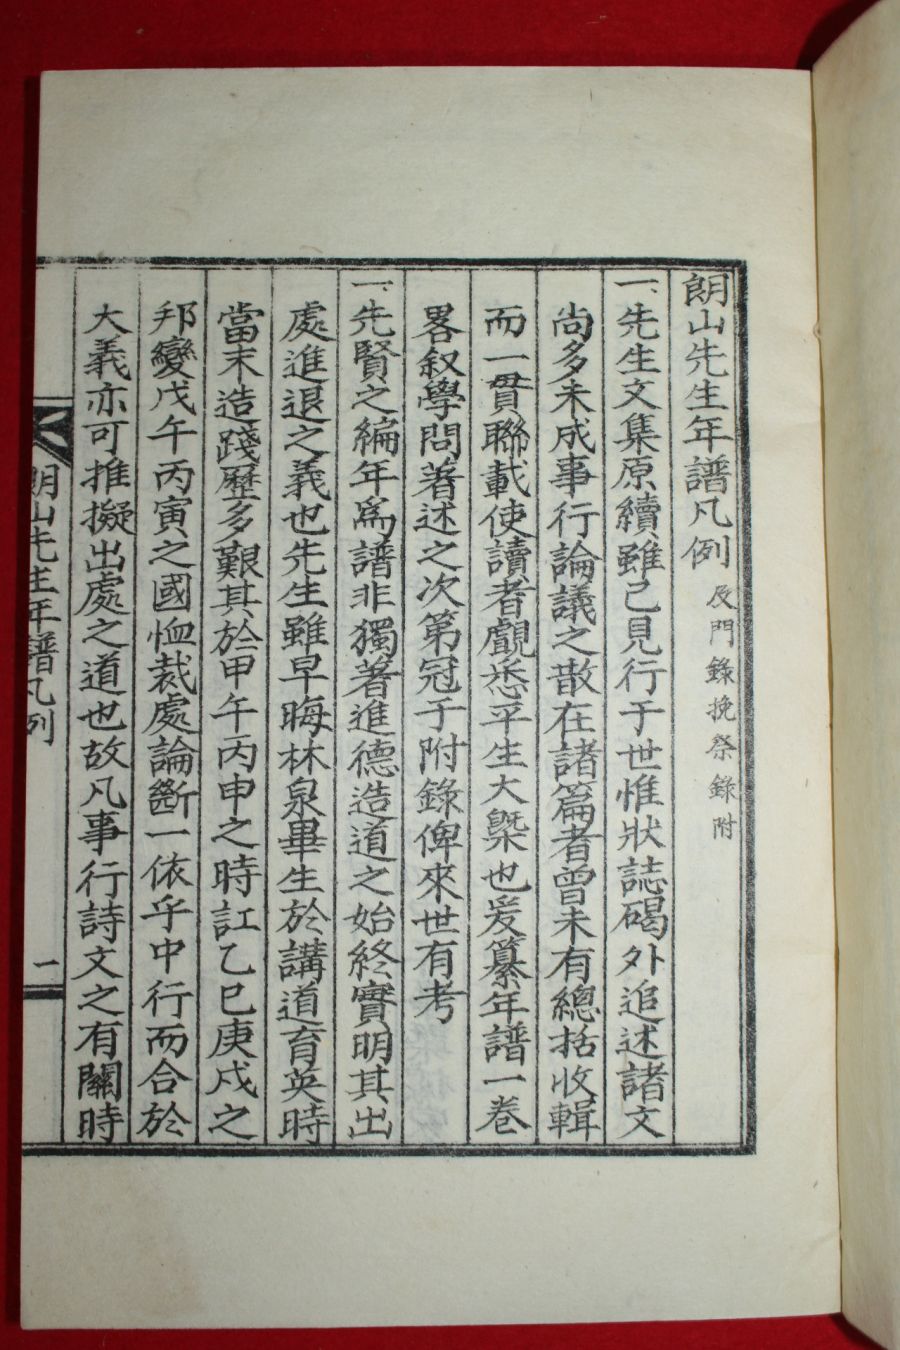 朗山先生年譜凡例 及門錄挽祭錄附
一先生文集原續雖已見行于世惟狀誌碣外追述諸文
尚多未成事行論議之散在諸篇者曾未有總括收輯
而一貫聯載使讀者覰悉平生大槩也爰纂年譜一卷
畧叙學問著述之次第冠于附錄俾來世有考
一先賢之編年爲譜非獨著進德造道之始終實明其出
處進退之義也先生雖早晦林泉畢生於講道育英時
當末造踐歷多艱其於甲午丙申之時訌乙巳庚戌之
邦變戊午丙寅之國恤裁處論斷一依乎中行而合於
大義亦可推擬出處之道也故凡事行詩文之有關時
朗山先生年譜凡例 一